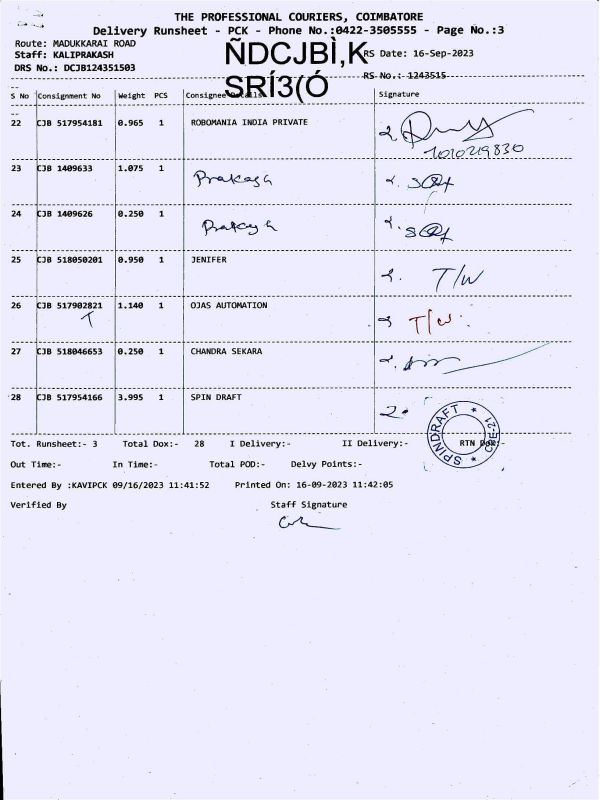 THE PROFESSIONAL COURIERS, COIMBATORE
Delivery Runsheet - PCK - Phone No.:0422-3505555 - Page No.:3
Route: MADUKKARAI ROAD
Staff: KALIPRAKASH ÑDCJBÌ,K RS Date: 16-Sep-2023
DRS No.: DCJB124351503 SRÍ3(Ó RS No.: 1243515
S No Consignment No Weight PCS Consignee Details Signature
22 CJB 517954181 0.965 1 ROBOMANIA INDIA PRIVATE
1010219830
23 CJB 1409633 1.075 1 Prakash
24 CJB 1409626 0.250 1 Prakash
25 CJB 518050201 0.950 1 JENIFER T/W
26 CJB 517902821 1.140 1 OJAS AUTOMATION T/W
T
27 CJB 518046653 0.250 1 CHANDRA SEKARA
28 CJB 517954166 3.995 1 SPIN DRAFT
SPINDRAFT * CBE-21 *
Tot. Runsheet:- 3 Total Dox:- 28 I Delivery:- II Delivery:- RTN Dox:-
Out Time:- In Time:- Total POD:- Delvy Points:-
Entered By :KAVIPCK 09/16/2023 11:41:52 Printed On: 16-09-2023 11:42:05
Verified By Staff Signature